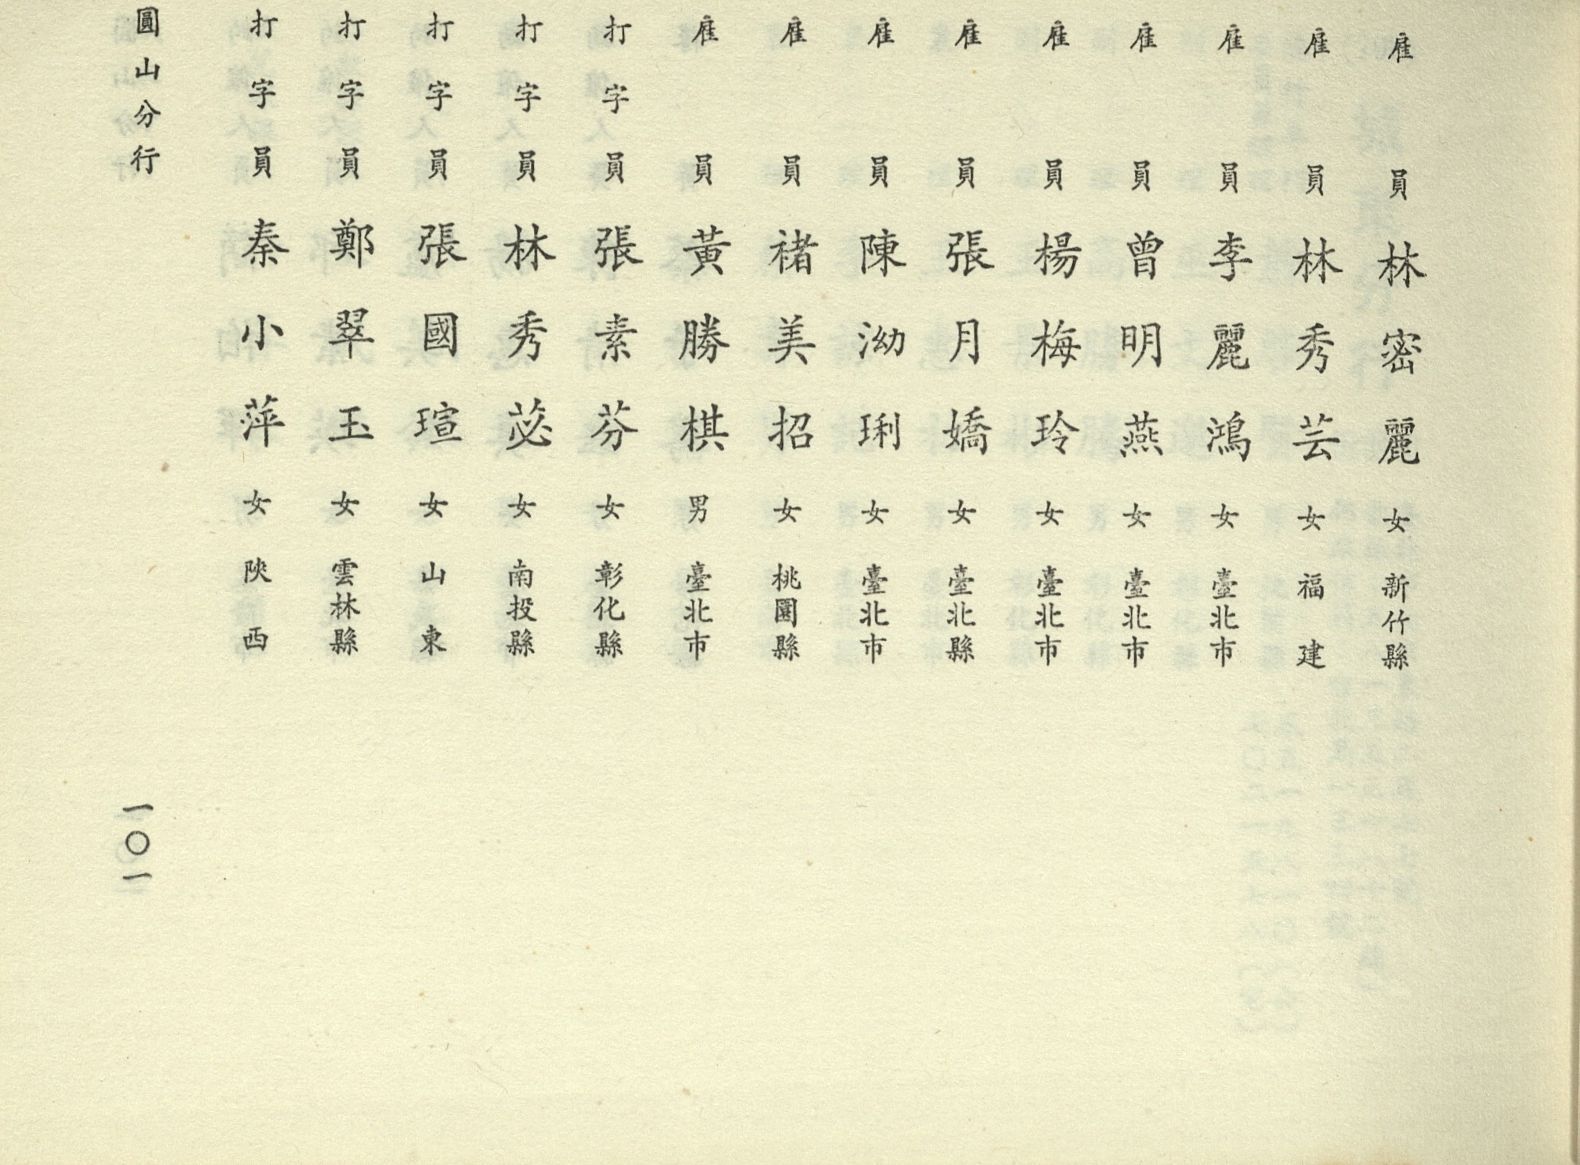 雇員林密麗女新竹縣
雇員林秀芸女福建
雇員李麗鴻女臺北市
雇員曾明燕女臺北市
雇員楊梅玲女臺北市
雇員張月嬌女臺北縣
雇員陳泑琍女臺北市
雇員褚美招女桃園縣
雇員黃勝棋男臺北市
打字員張素芬女彰化縣
打字員林秀苾女南投縣
打字員張國瑄女山東
打字員鄭翠玉女雲林縣
打字員秦小萍女陝西
圓山分行
一〇一